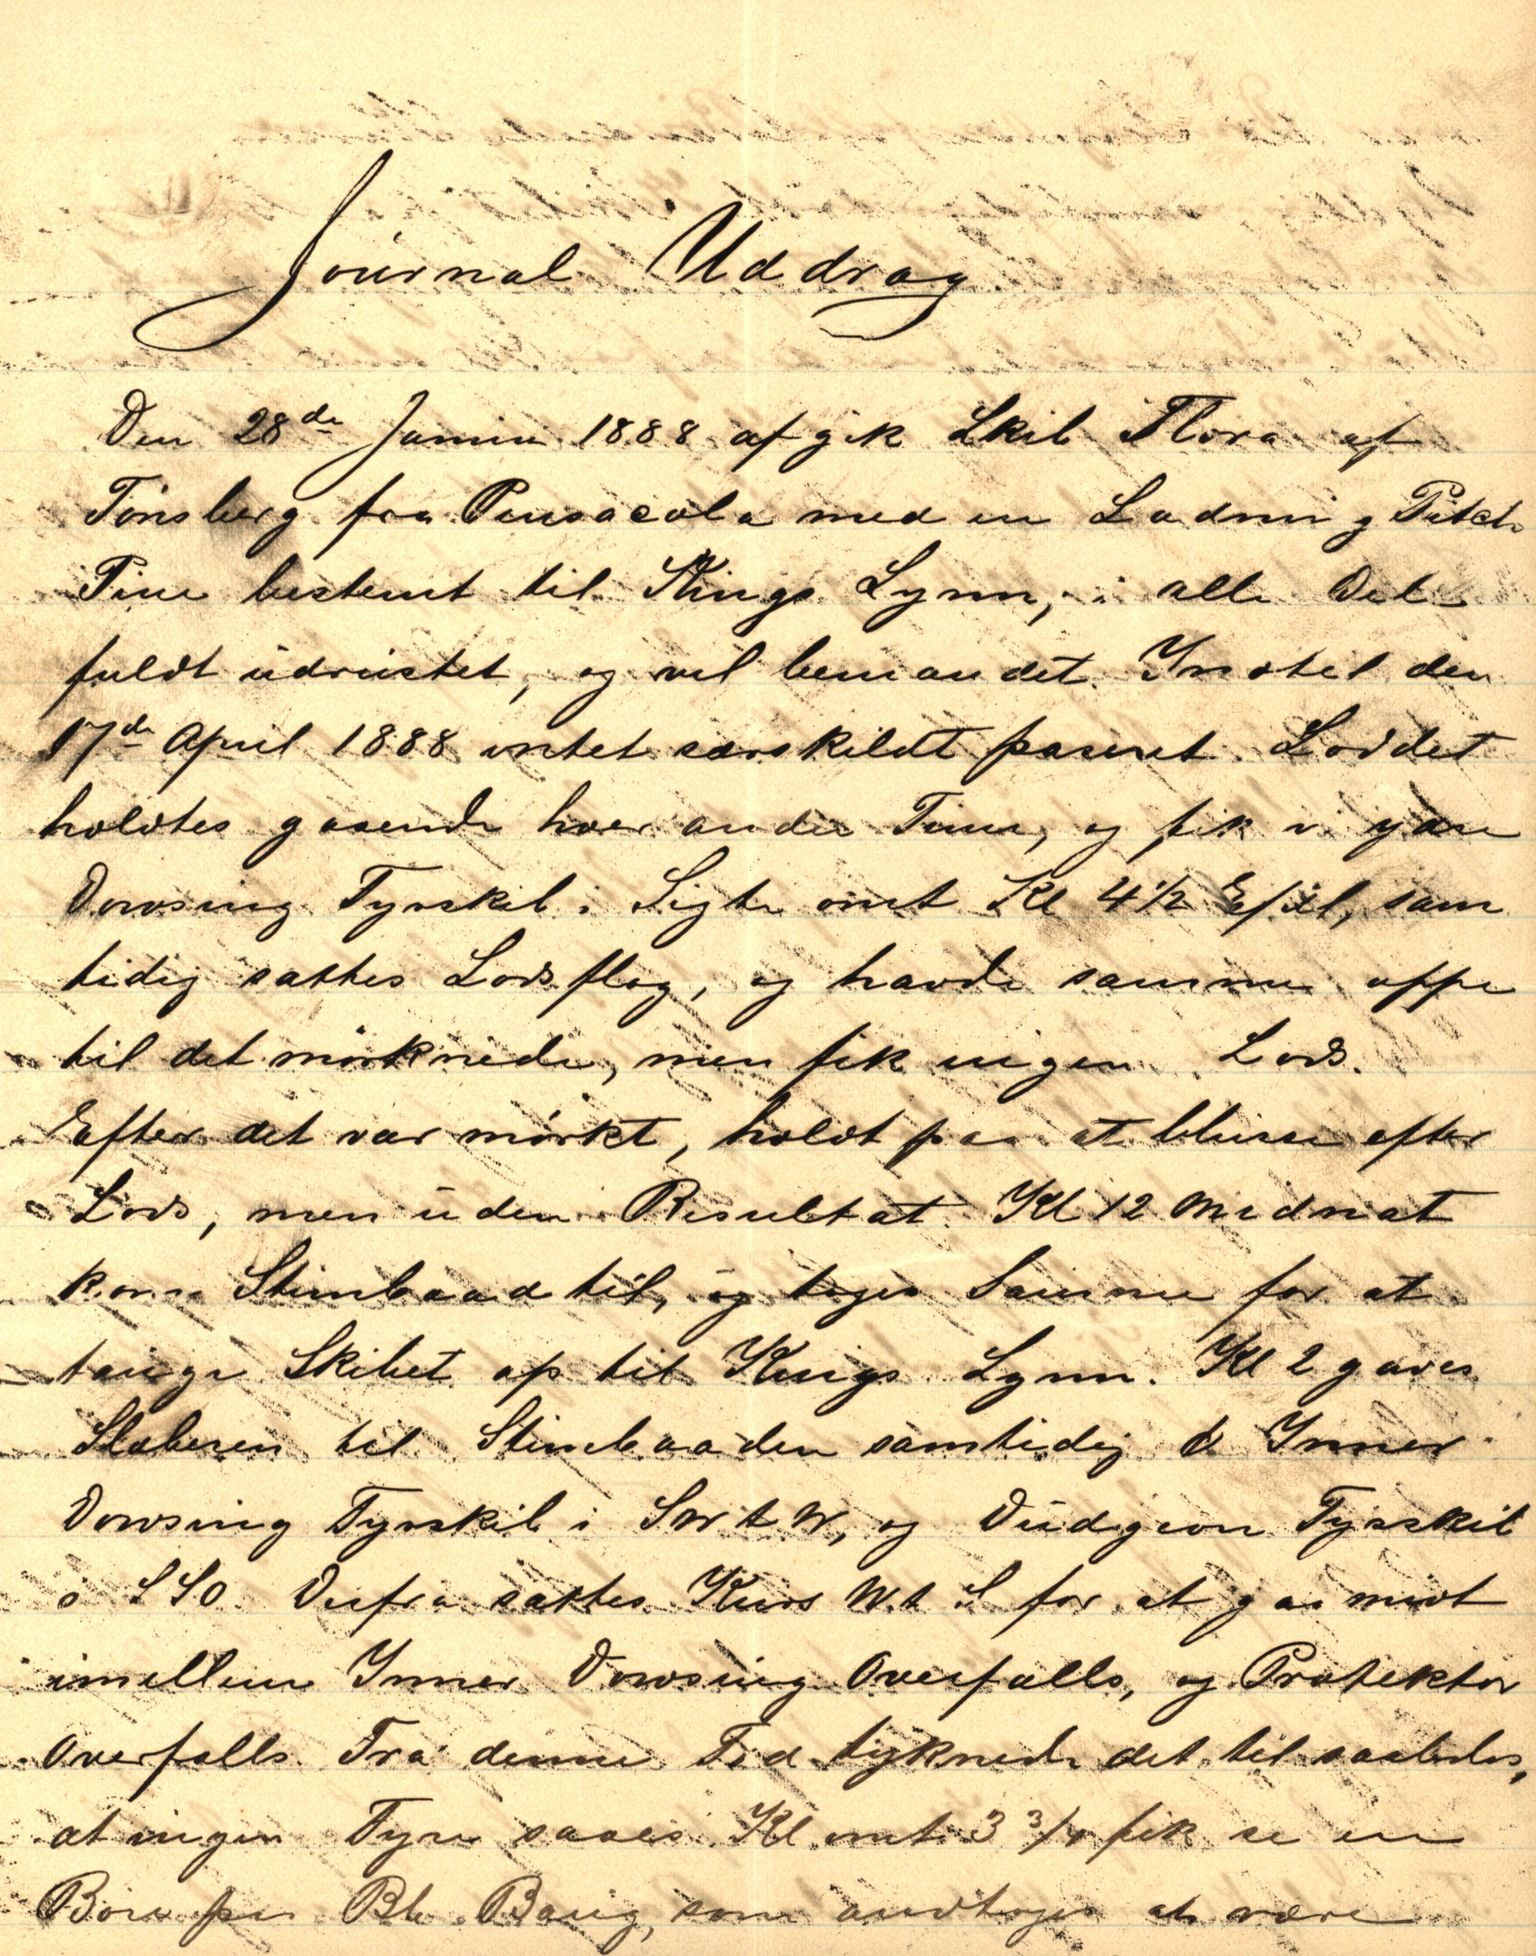 Journal Uddrag
Den 28de Januar 1888 afgik Skib Flora af
Tønsberg fra Pensacola med en Ladning Pitch
Pine bestemt til Kings Lynn, i alle Dele
fuldt udrustet, og vel bemandet. Indtil den
17de April 1888 intet særskildt paseret. Loddet
holdtes gaaende hver anden Time, og fik vi ydre
Dowsing Fyrskib i Sigte omt Kl 4 1/2 Ef/M, sam
tidig sattes Lodsflag, og havde samme oppe
til det mørknede, men fik ingen Lods.
Efter det var mørkt, holdt paa at blusse efter
Lods, men uden Resultat. Kl 12 Midnat
kom Stimbaad til, og toges Samme for at
tauge Skibet op til Kings Lynn. Kl 2 gaves
Slæberen til Stimbaaden samtidig Inner
Dowsing Fyrskib i SW t W, og Dudgeon Fyrskib
i SSO. Derfra sattes Kurs W t S for at gaa midt
imellem Inner Dowsing Overfalls, og Protektor
Overfalls. Fra denne Tid tyknede det til saaledes,
at ingen Fyre saaes. Kl omt 3 3/4 fik se en
Boie paa Bb Baug, som andtoges at være